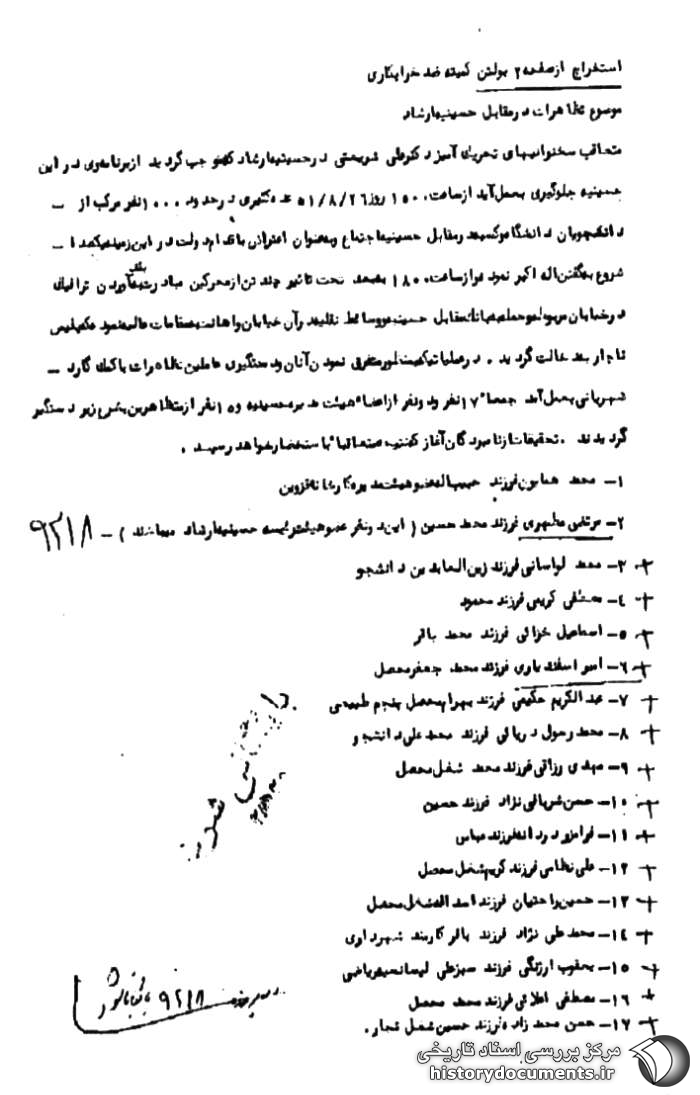 استخراج از صفحه ۲ بولتن کمیته ضد خرابکاری
موضوع تظاهرات در مقابل حسینیه ارشاد
متعاقب سخنرانیهای تحریک آمیز دکتر علی شریعتی در حسینیه ارشاد که موجب گردید از برنامه‌وی در این
حسینیه جلوگیری بعمل آید از ساعت ۱۵۰۰ روز ۵۱/۸/۲۶ عده کثیری در حدود ۱۰۰۰ نفر مرکب از —
دانشجویان دانشگاه و کسبه در مقابل حسینیه اجتماع و بعنوان اعتراض باقدام دولت در این زمینه یکصدا —
شروع بگفتن اله اکبر نموده و از ساعت ۱۸۰۰ ببعد تحت تاثیر چند تن از محرکین مبادرت به آوردن ترافیک
در خیابان مربوطه و حمله به بانک مقابل حسینیه و وسائط نقلیه در آن خیابان و اهانت بمقامات عالیه نمودند که پلیس
ناچار بمداخلت گردید . در عملیاتیکه بمنظور متفرق نمودن آنان و دستگیری عاملین تظاهرات با کمک گارد —
شهربانی بعمل آمد جمعا" ۱۷ نفر و دو نفر از اعضاء هیئت مدیره حسینیه و ۱۵ نفر از متظاهرین بشرح زیر دستگیر
گردیدند . تحقیقات از نامبردگان آغاز که نتیجه متعاقبا" باستحضار خواهد رسید .
۱— محمد همایون فرزند حبیب اله عضو هیئت مدیره کارخانه قزوین
۲— مرتضی مطهری فرزند محمد حسین ( این دو نفر عضو هیئت رئیسه حسینیه ارشاد میباشند ) — ۹۲۱۸
۳— محمد لواسانی فرزند زین العابدین دانشجو
۴— مصطفی کریمی فرزند محمود
۵— اسماعیل خزائی فرزند محمد باقر
۶— امیر اسفندیاری فرزند محمد جعفر محصل
۷— عبدالکریم حکیمی فرزند بهرام محصل پنجم طبیعی
۸— محمد رسول دریائی فرزند محمد علی دانشجو
۹— مهدی رزاقی فرزند محمد شغل محصل
۱۰— حسن شربالی نژاد فرزند حسین
۱۱— فرامرز فرزند عباس
۱۲— علی نظامی فرزند کریم شغل محصل
۱۳— حسین راحتیان فرزند اسداله شغل محصل
۱۴— محمد علی نژاد فرزند باقر کارمند شهرداری
۱۵— یعقوب ارژنگی فرزند سبزعلی لیسانسیه ریاضی
۱۶— مصطفی اعلائی فرزند محمد محصل
۱۷— حسن محمد زاده فرزند حسین شغل نجار .
۹۲۱۸
مرکز بررسی اسناد تاریخی
historydocuments.ir